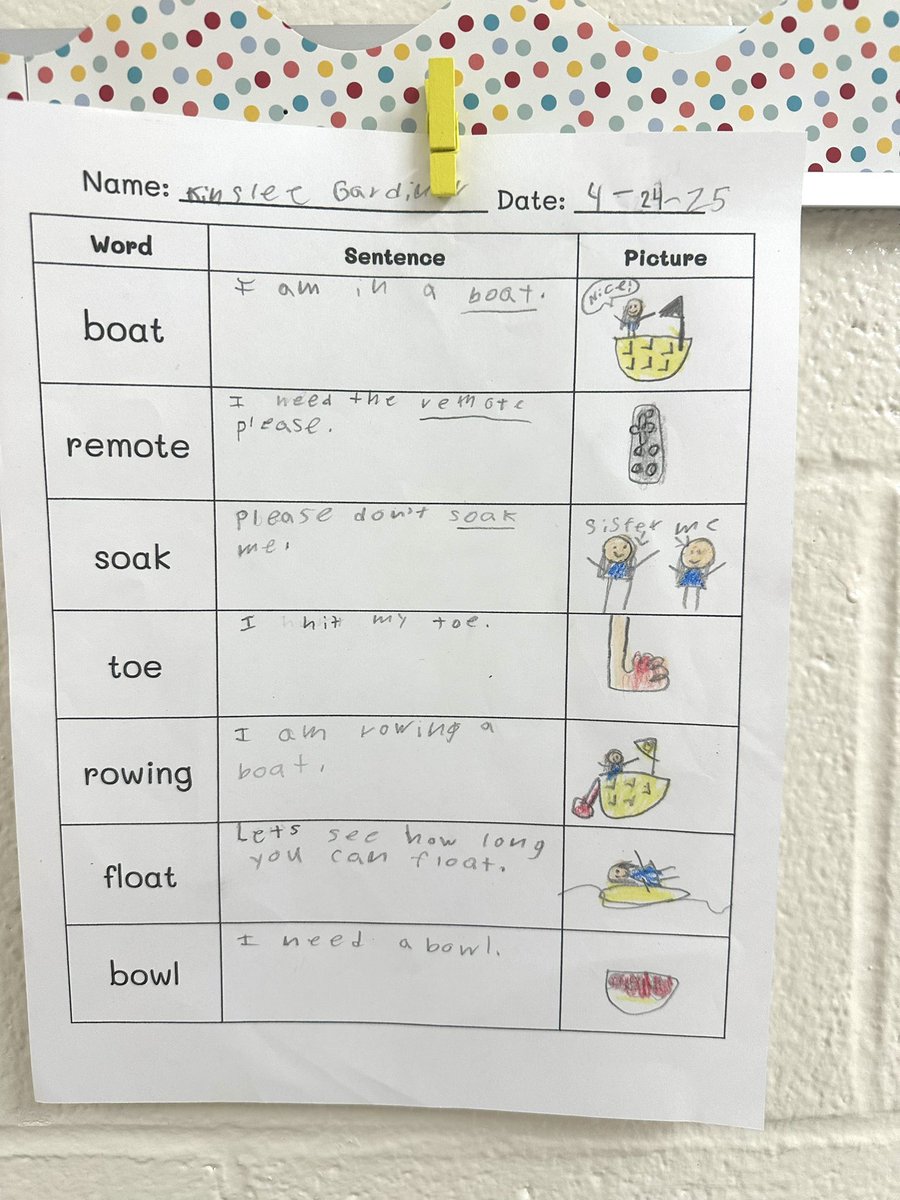 Name: Kinslee Gardiner Date: 4-24-25
Word Sentence Picture
boat I am in a boat. Nice!
remote I need the remote
please.
soak please don't soak sister me
me.
toe I hit my toe.
rowing I am rowing a
boat.
float Lets see how long
you can float.
bowl I need a bowl.